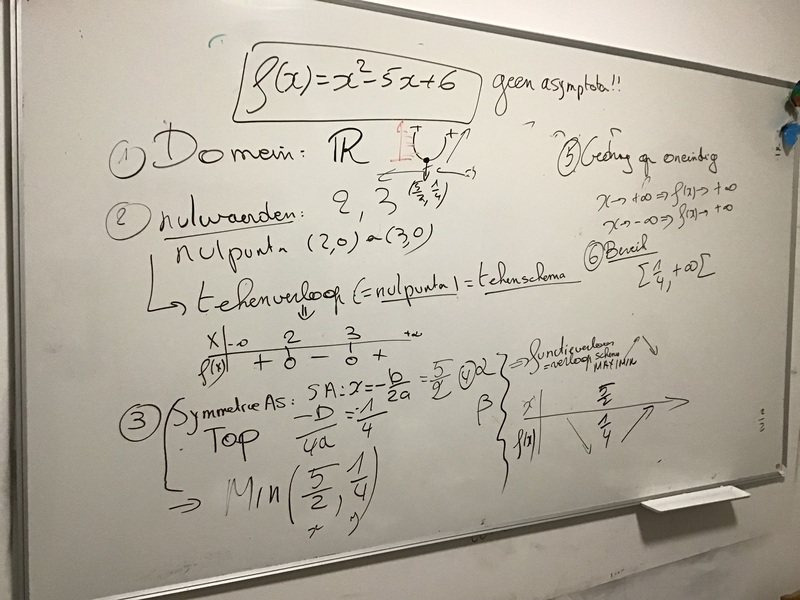 f(x)=x²-5x+6
geen asymptota!!
① Domein: ℝ
+ +
(5/2, 1/4)
② nulwaarden: 2, 3
nulpunta (2,0) en (3,0)
↳ tekenverloop (=nulpunta) = tekenschema
x | -∞ 2 3 +∞
f(x) | + 0 - 0 +
③ Symmetrie As: SA: x = -b/2a = 5/2
Top -D/4a = 1/4
⇒ Min(5/2, 1/4)
x y
④ α
β
⇒ functieverloop
=verloop schema
MAX/MIN
x | 5/2
f(x) | ↘ 1/4 ↗
⑤ Gedrag op oneindig
x→+∞ ⇒ f(x)→+∞
x→-∞ ⇒ f(x)→+∞
⑥ Bereik
[1/4, +∞[